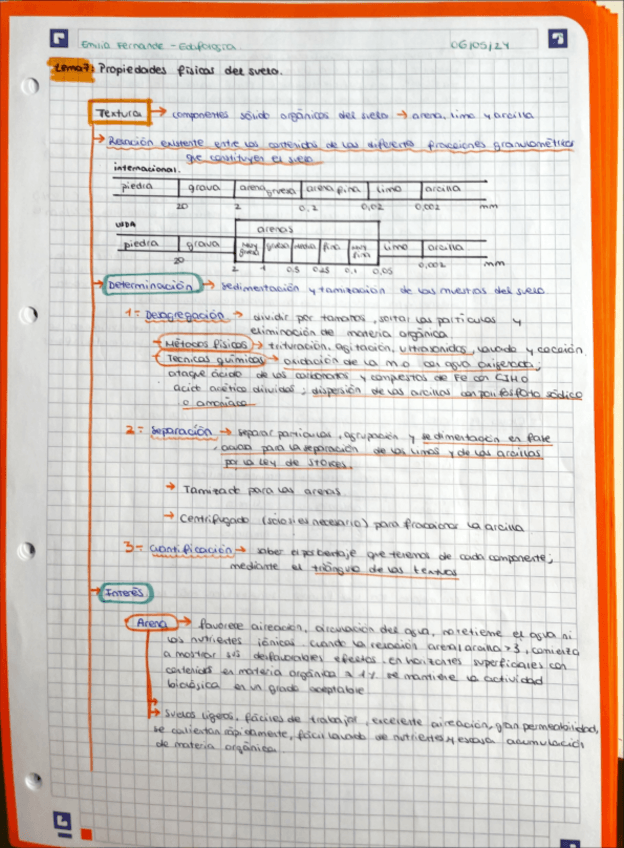 Emilia Fernande - Edafología.
06/05/24
tema 7: Propiedades físicas del suelo.
Textura → componentes sólido orgánicos del suelo → arena, limo y arcilla
→ Relación existente entre los contenidos de las diferentes fracciones granulométricas
que constituyen el suelo
internacional.
piedra grava arena gruesa arena fina limo arcilla
20 2 0,2 0,02 0,002 mm
USDA
arenas
piedra grava muy gruesa gruesa media fina muy fina limo arcilla
20 2 1 0,5 0,25 0,1 0,05 0,002 mm
→ Determinación → sedimentación y tamización de las muestras del suelo
1= Desagregación → dividir por tamaños, soltar las partículas y
eliminación de materia orgánica
→ Métodos físicos → trituración, agitación, ultrasonidos, lavado y cocción
→ Técnicas químicas → oxidación de la m.o con agua oxigenada,
ataque ácido de los carbonatos y compuestos de Fe con
ácido acético diluidos; dispersión de las arcillas con polifosfato sódico
o amoniaco
2= Separación → separar partículas, agrupación y sedimentación en fase
acuosa para la separación de los limos y de las arcillas
por la ley de STOKES.
→ Tamizado para las arenas
→ Centrifugado (solo si es necesario) para fraccionar la arcilla
3= Cuantificación → saber el porcentaje que tenemos de cada componente;
mediante el triángulo de las texturas
→ Interés
Arena → favorece aireación, circulación del agua, no retiene el agua ni
los nutrientes iónicos. cuando la relación arena/arcilla > 3, comienza
a mostrar sus desfavorables efectos. en horizontes superficiales con
contenidos en materia orgánica ≥ 1% se mantiene la actividad
biológica en un grado aceptable
→ Suelos ligeros, fáciles de trabajar, excelente aireación, gran permeabilidad,
se calientan rápidamente, fácil lavado de nutrientes y escasa acumulación
de materia orgánica.